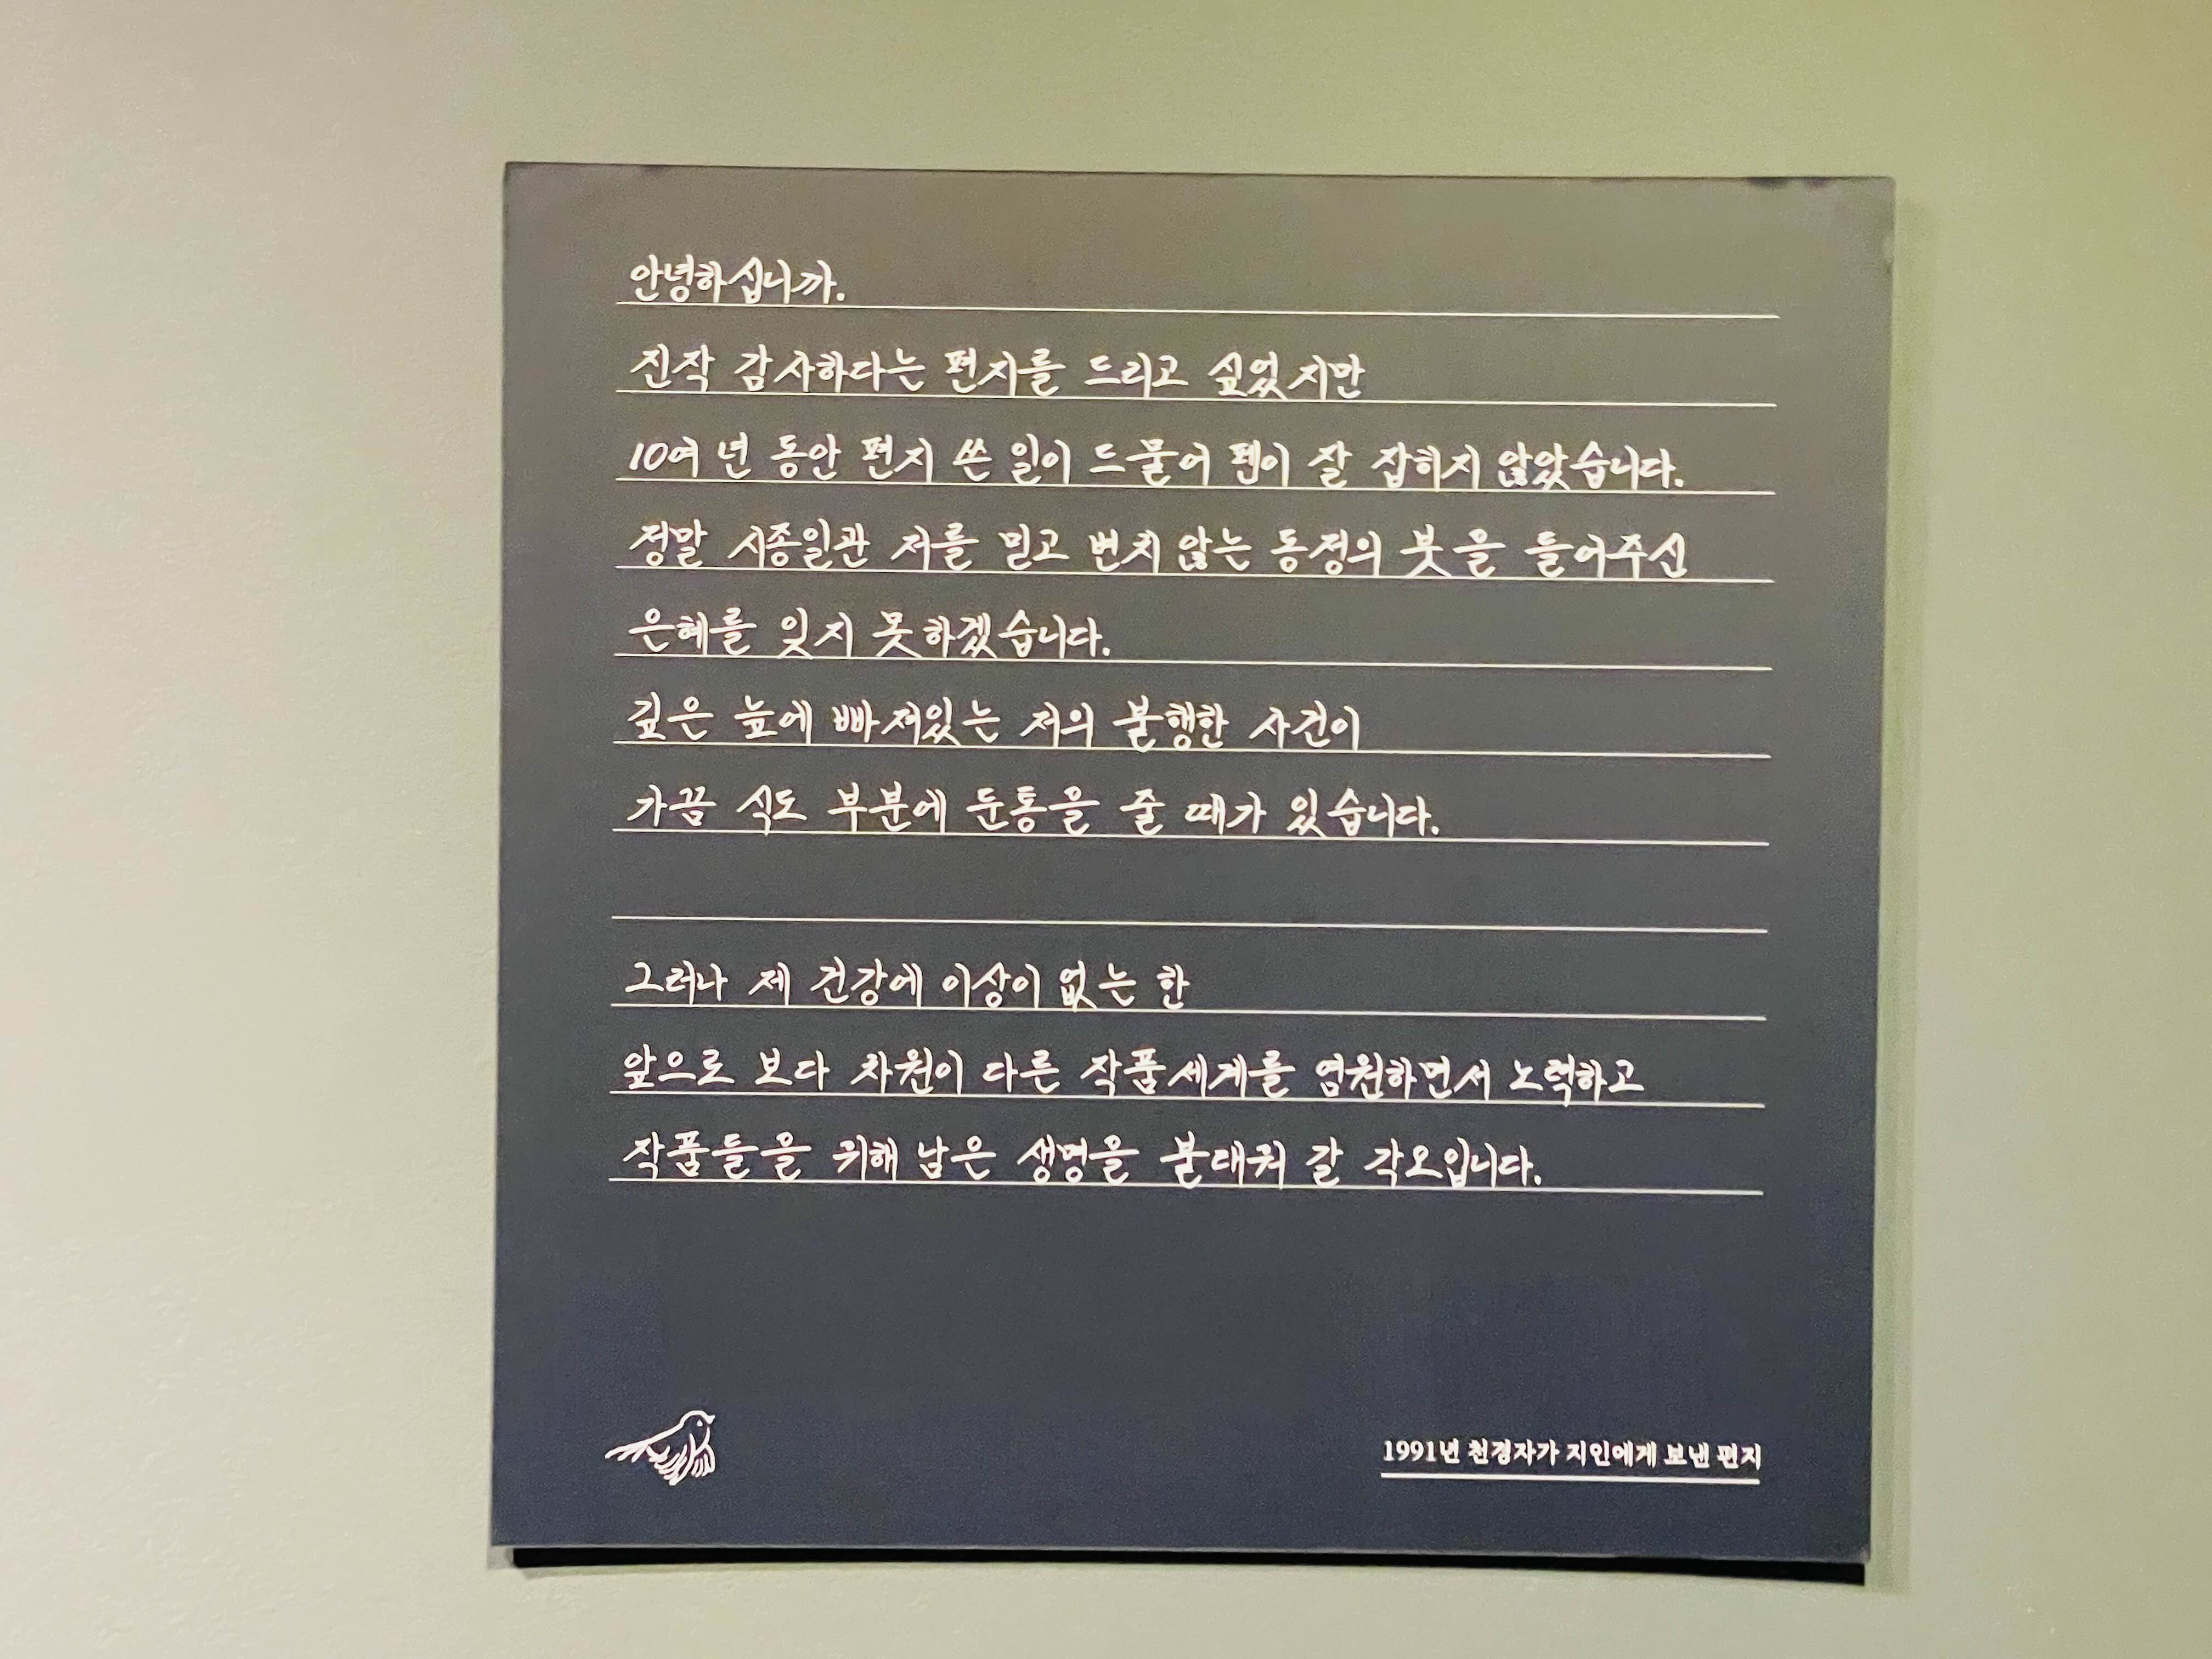 안녕하십니까.
진작 감사하다는 편지를 드리고 싶었지만
10여 년 동안 편지 쓴 일이 드물어 펜이 잘 잡히지 않았습니다.
정말 시종일관 저를 믿고 변치 않는 동정의 붓을 들어주신
은혜를 잊지 못하겠습니다.
깊은 늪에 빠져있는 저의 불행한 사건이
가끔 식도 부분에 둔통을 줄 때가 있습니다.
그러나 제 건강에 이상이 없는 한
앞으로 보다 차원이 다른 작품세계를 염원하면서 노력하고
작품들을 위해 남은 생명을 불태워 갈 각오입니다.
1991년 천경자가 지인에게 보낸 편지